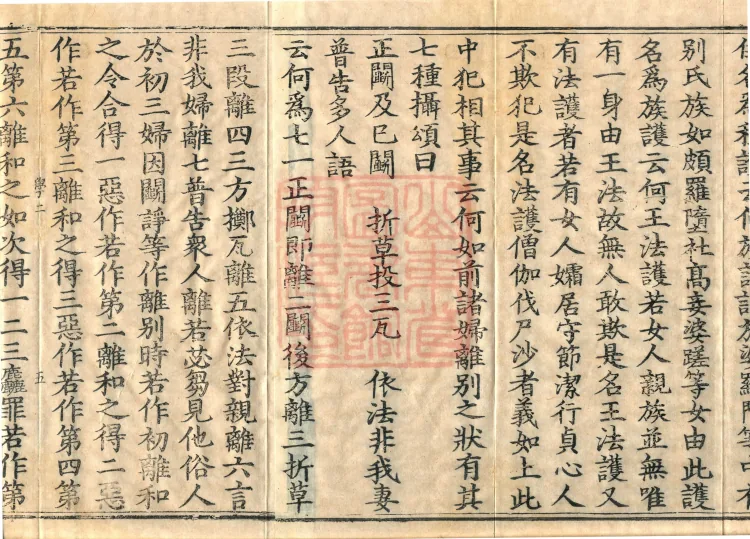 別氏族如頗羅墮社高妾婆蹉等女由此護
名爲族護云何王法護若女人親族並無唯
有一身由王法故無人敢欺是名王法護又
有法護者若有女人孀居守節潔行貞心人
不欺犯是名法護僧伽伐尸沙者義如上此
中犯相其事云何如前諸婦離別之狀有其
七種攝頌曰
正鬭及巳鬭 折草投三瓦 依法非我妻
普告多人語
云何爲七一正鬭即離二鬭後方離三折草
三段離四三方擲瓦離五依法對親離六言
非我婦離七普告衆人離若苾芻見他俗人
於初三婦因鬭諍等作離別時若作初離和
之令合得一惡作若作第二離和之得二惡
作若作第三離和之得三惡作若作第四第
學二 五
五第六離和之如次得一二三麤罪若作第